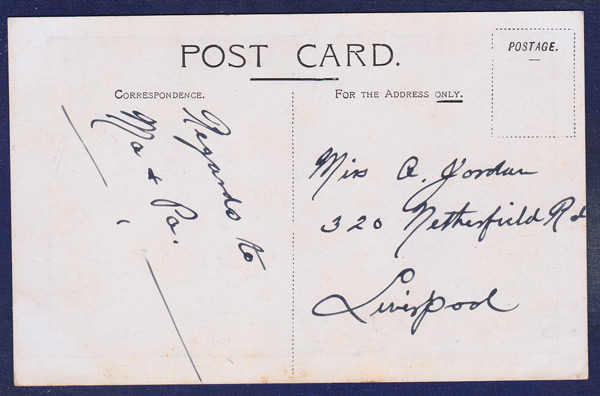 POST CARD.
POSTAGE.
CORRESPONDENCE.
FOR THE ADDRESS ONLY.
Regards to
Ma & Pa.
Miss A. Jordan
320 Netherfield Rd
Liverpool